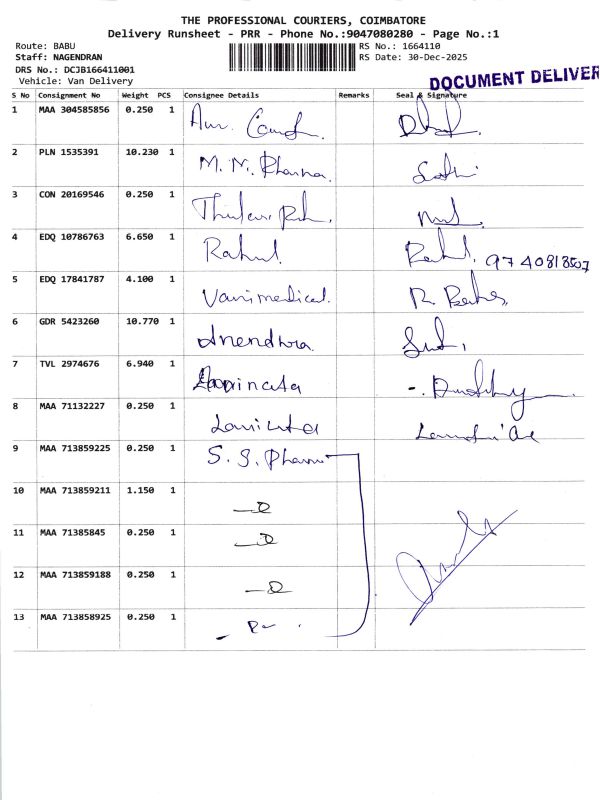 THE PROFESSIONAL COURIERS, COIMBATORE
Delivery Runsheet - PRR - Phone No.:9047080280 - Page No.:1
Route: BABU
Staff: NAGENDRAN
DRS No.: DCJB166411001
Vehicle: Van Delivery
RS No.: 1664110
RS Date: 30-Dec-2025
DOCUMENT DELIVER
S No Consignment No Weight PCS Consignee Details Remarks Seal & Signature
1 MAA 304585856 0.250 1
2 PLN 1535391 10.230 1 M. N. Pharma.
3 CON 20169546 0.250 1
4 EDQ 10786763 6.650 1 Rahul. 9740818507
5 EDQ 17841787 4.100 1 Vani medical.
6 GDR 5423260 10.770 1
7 TVL 2974676 6.940 1
8 MAA 71132227 0.250 1
9 MAA 713859225 0.250 1 S. S. Pharm
10 MAA 713859211 1.150 1
11 MAA 71385845 0.250 1
12 MAA 713859188 0.250 1
13 MAA 713858925 0.250 1